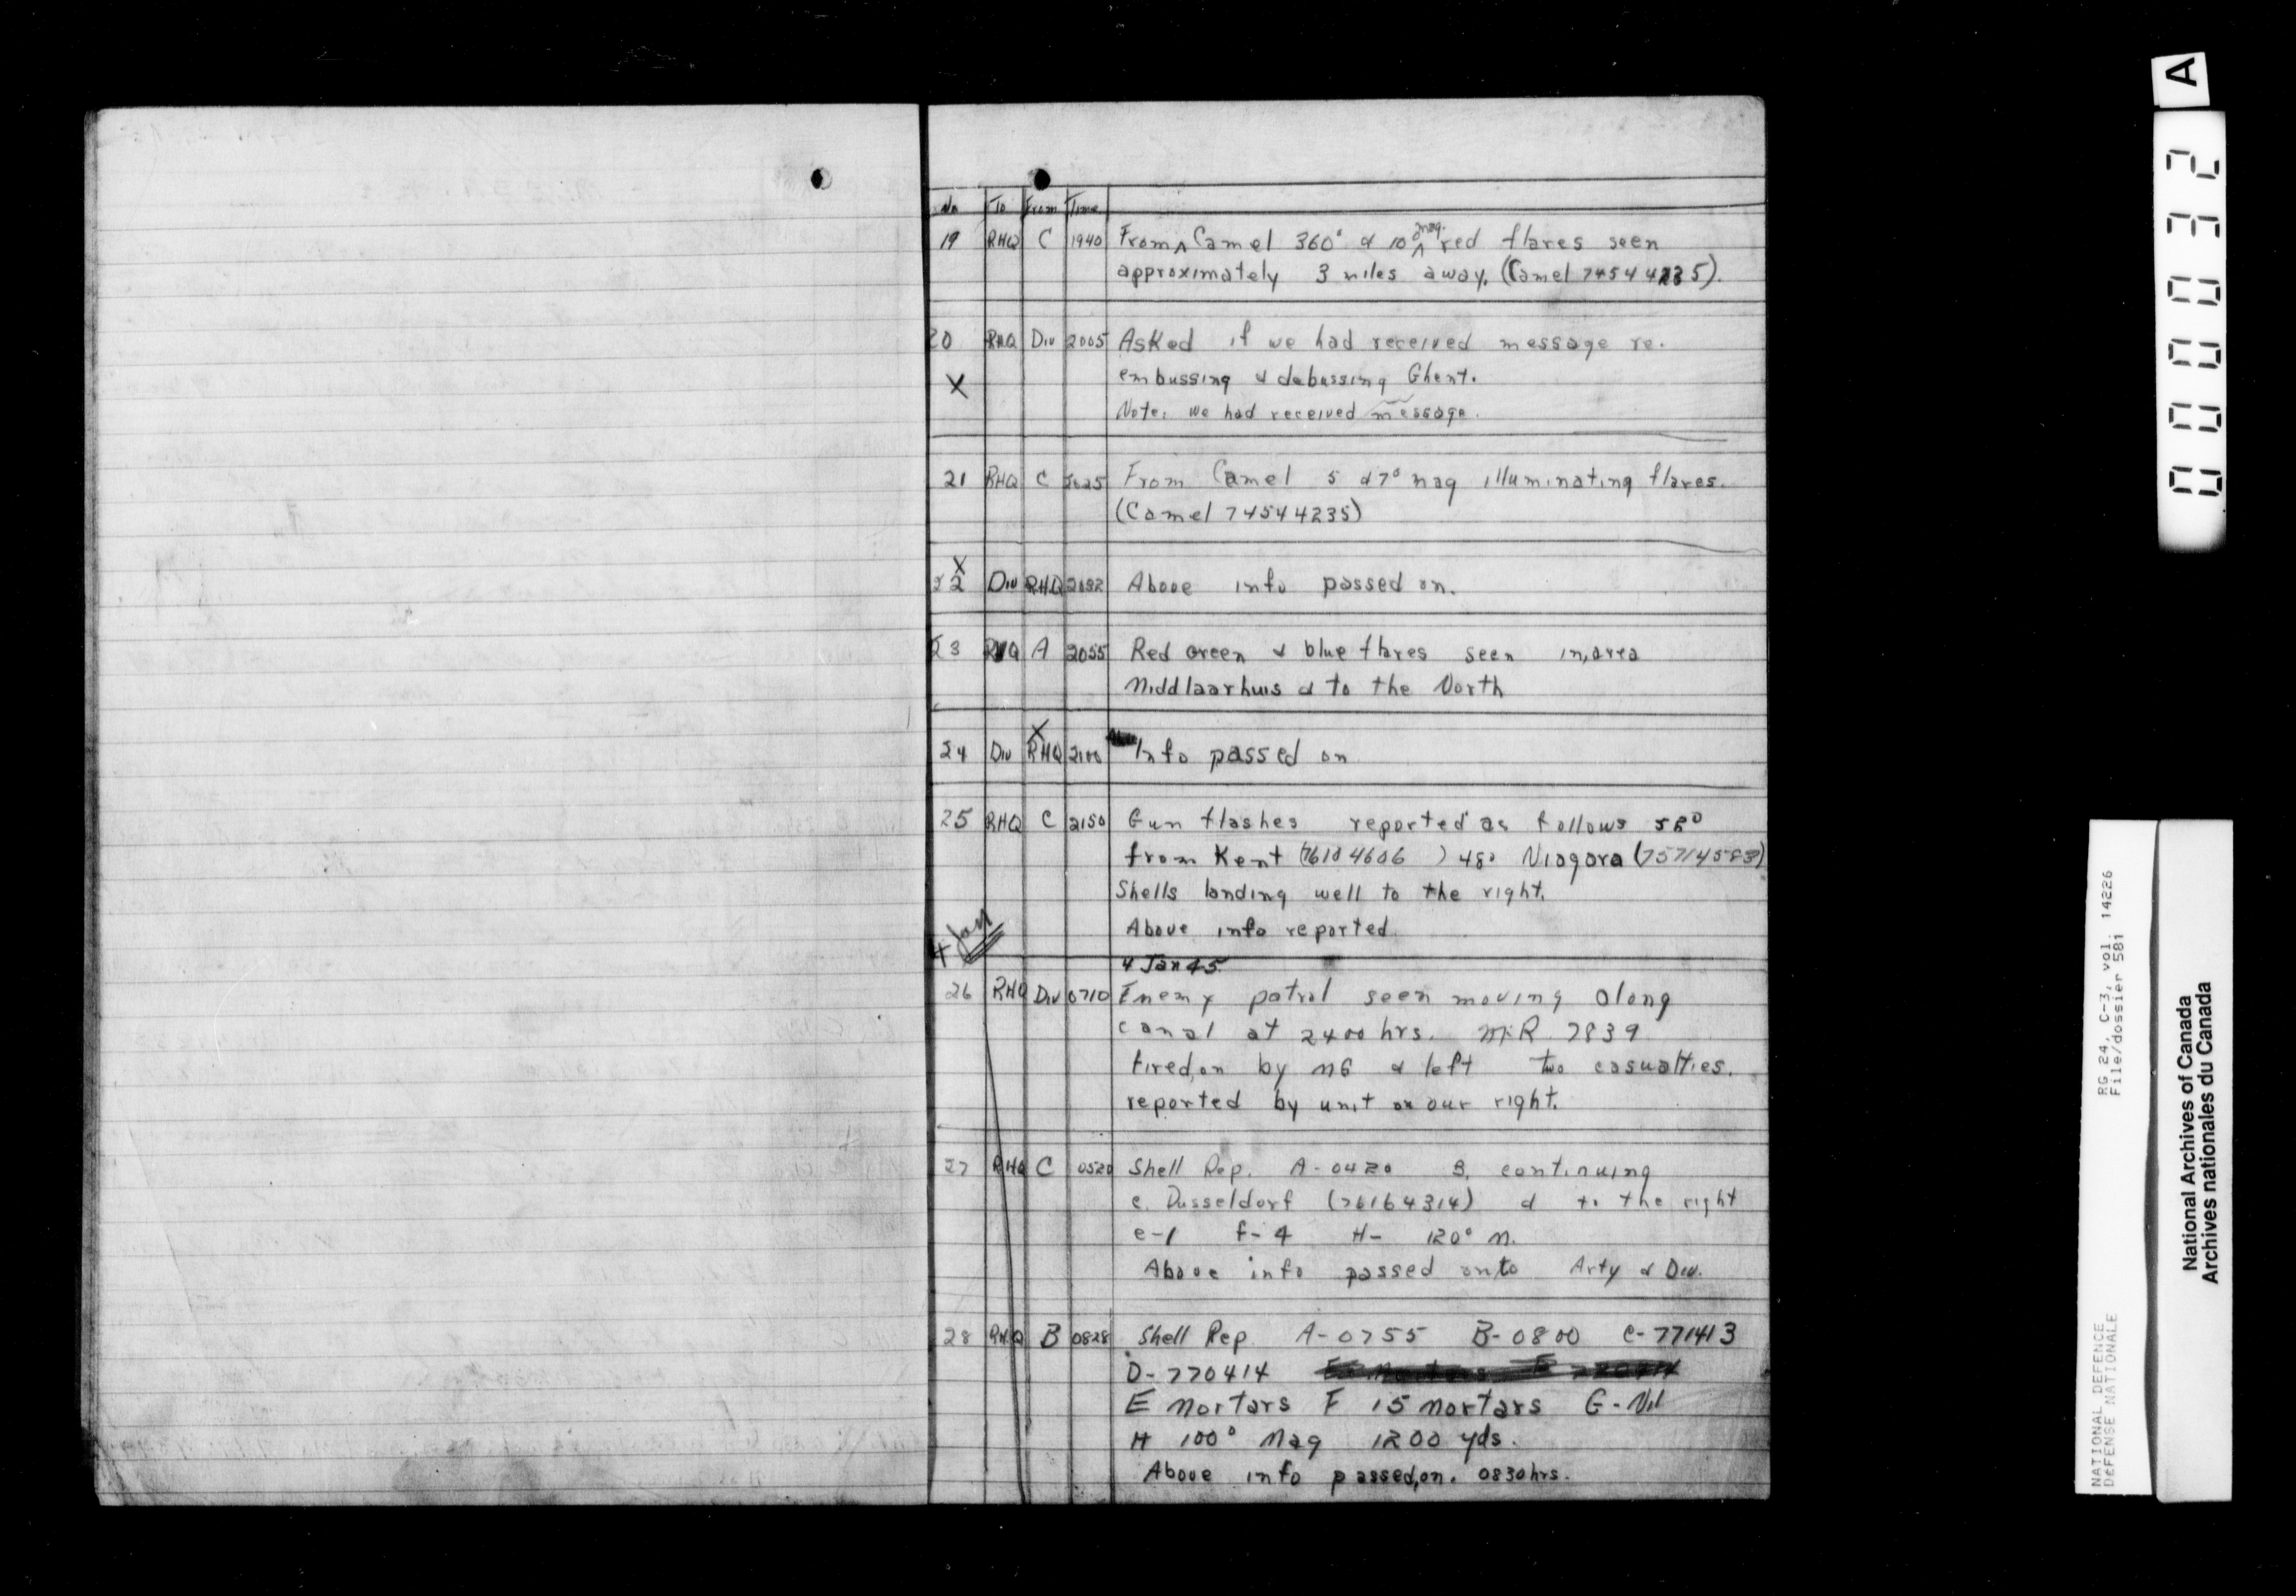 No To From Time
19 RHQ C 1940 From Camel 360° & 10° mag. red flares seen
approximately 3 miles away. (Camel 74544235).
20 RHQ Div 2005 Asked if we had received message re.
X embussing & debussing Ghent.
Note: we had received message.
21 RHQ C 2025 From Camel 5 & 7° mag illuminating flares.
(Camel 74544235)
X
22 Div RHQ 2032 Above info passed on.
23 RHQ A 2055 Red Green & blue flares seen in area
Middlaarhuis & to the North
X
24 Div RHQ 2100 Info passed on
25 RHQ C 2150 Gun flashes reported as follows
from Kent (76104606) 48° Niagara (75714583)
Shells landing well to the right.
Above info reported
4 Jan
4 Jan 45
26 RHQ Div 0710 Enemy patrol seen moving along
canal at 2400 hrs. MR 7839
fired on by MG & left two casualties.
reported by unit on our right.
27 RHQ C 0520 Shell Rep. A-0420 B. continuing
c. Dusseldorf (76164314) & to the right
e-1 f-4 H- 120° M.
Above info passed onto Arty & Div.
28 RHQ B 0828 Shell Rep A-0755 B-0800 C-771413
D-770414
E Mortars F 15 mortars G-Nil
H 100° Mag 1200 yds.
Above info passed on. 0830 hrs.
A
000032
NATIONAL DEFENCE RG 24, C-3, vol. 14226
DEFENSE NATIONALE File/dossier 581
National Archives of Canada
Archives nationales du Canada